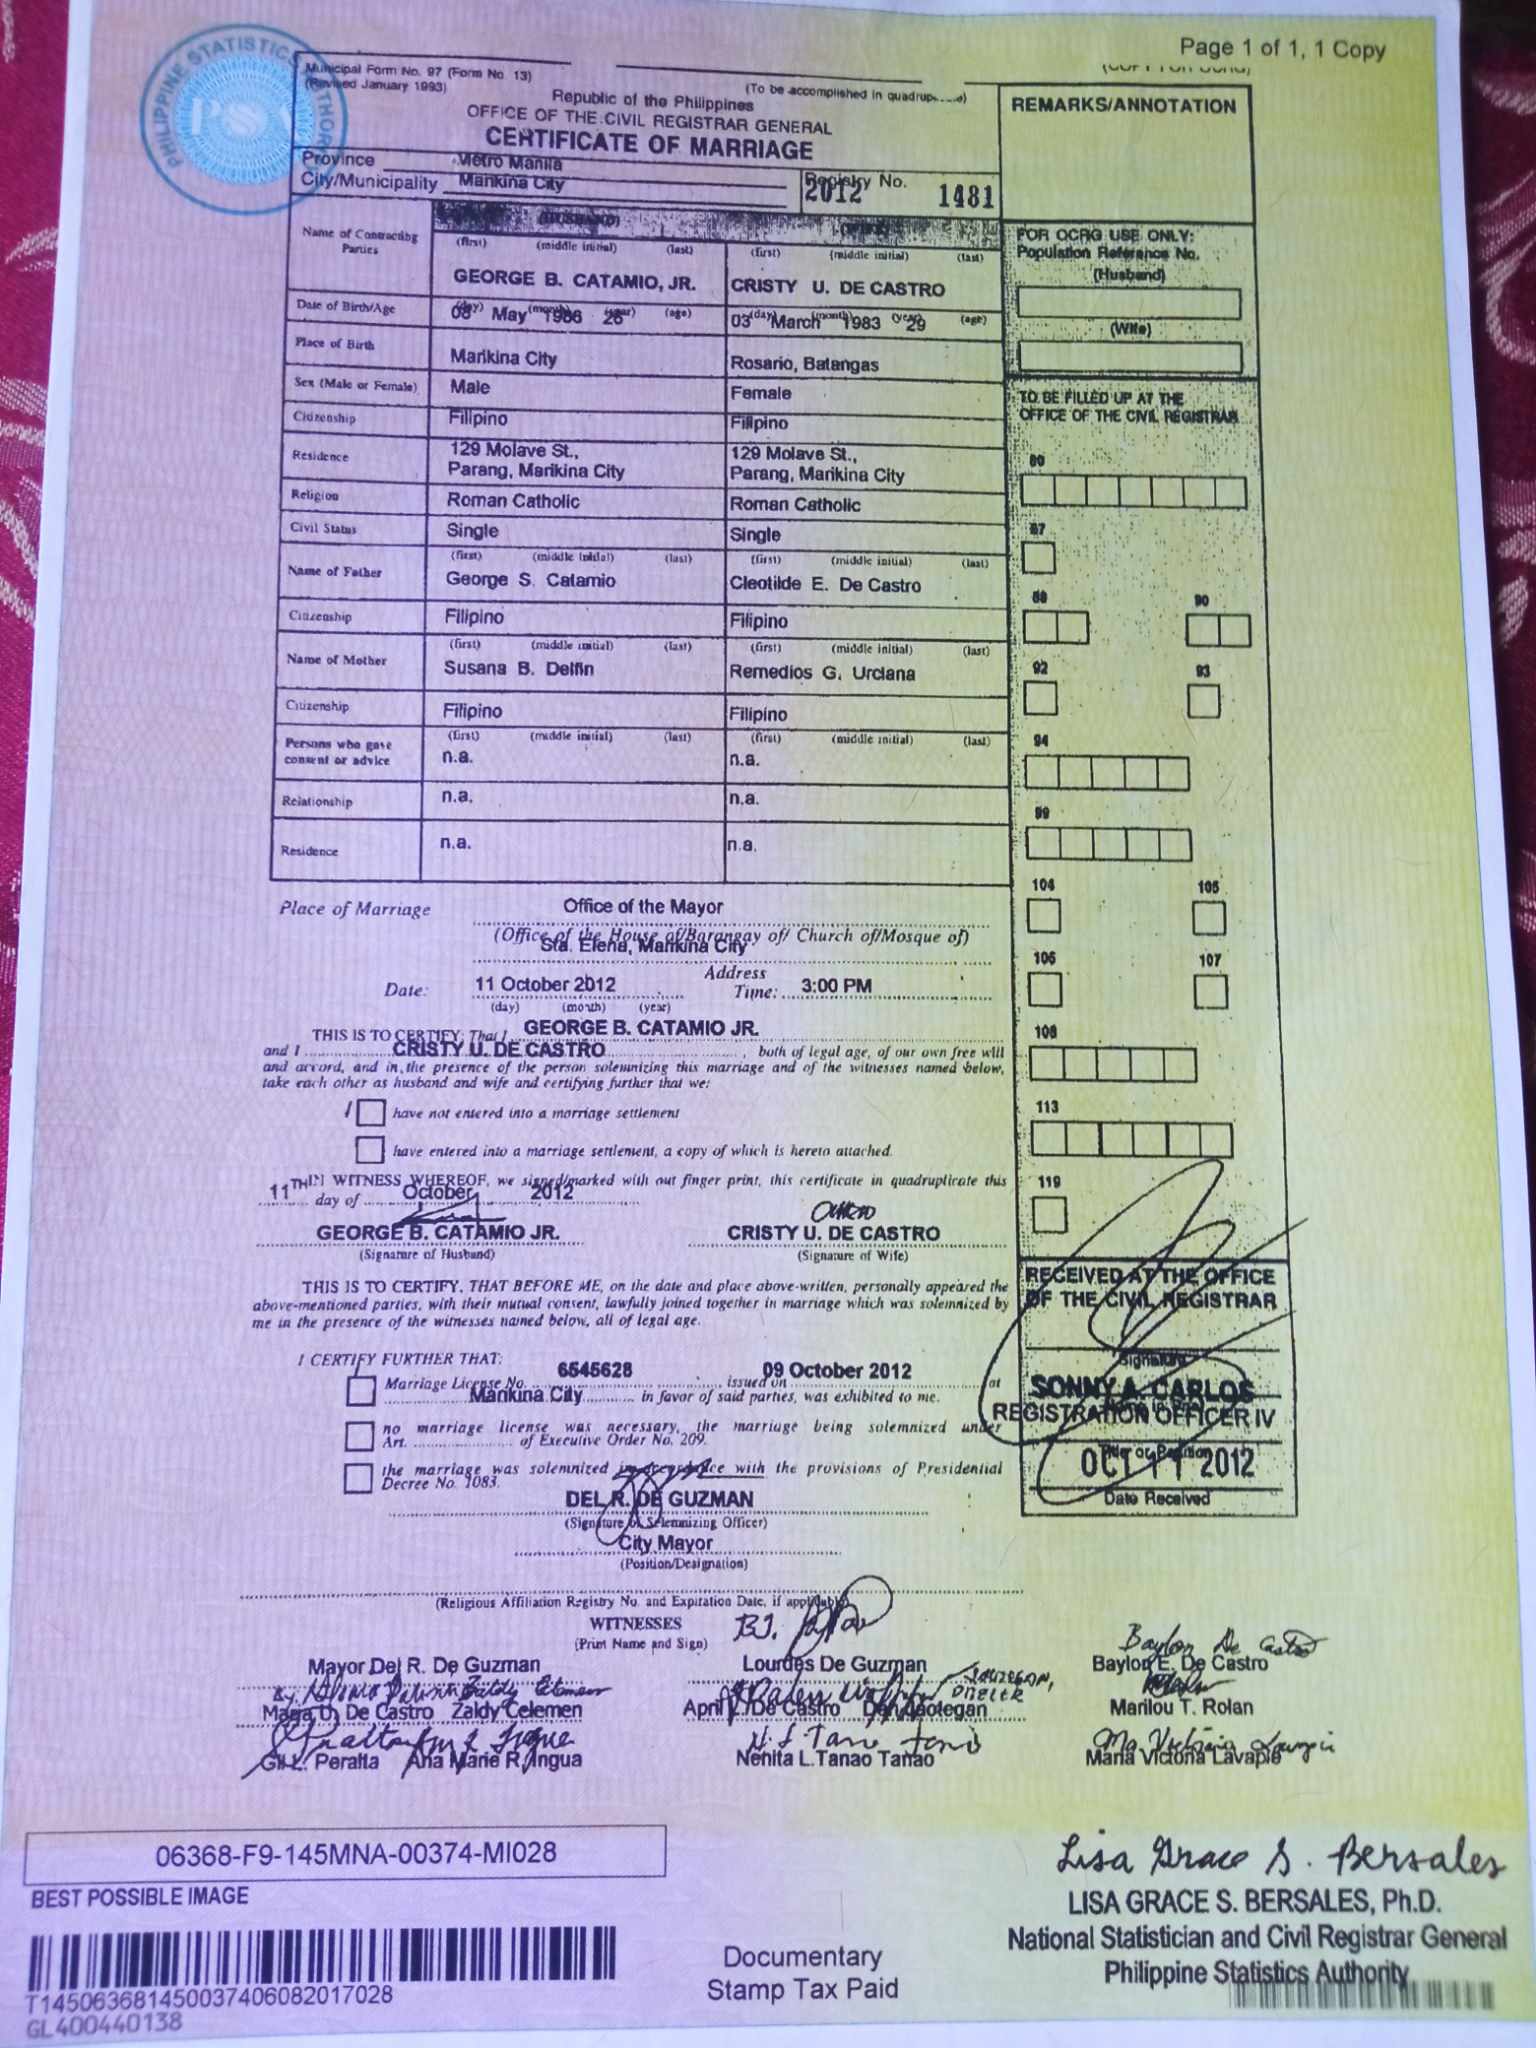 Page 1 of 1, 1 Copy
PHILIPPINE STATISTICS AUTHORITY
PSA
Municipal Form No. 97 (Form No. 13)
(Revised January 1993)
(To be accomplished in quadrup
Republic of the Philippines
OFFICE OF THE CIVIL REGISTRAR GENERAL
CERTIFICATE OF MARRIAGE
Province Metro Manila
City/Municipality Marikina City
Registry No.
2012 1481
REMARKS/ANNOTATION
Name of Contracting Parties
(HUSBAND) (WIFE)
(first) (middle initial) (last) (first) (middle initial) (last)
GEORGE B. CATAMIO, JR. CRISTY U. DE CASTRO
Date of Birth/Age
(day) (month) (year) (age) (day) (month) (year) (age)
08 May 1986 26 03 March 1983 29
Place of Birth Marikina City Rosario, Batangas
Sex (Male or Female) Male Female
Citizenship Filipino Filipino
Residence 129 Molave St., Parang, Marikina City 129 Molave St., Parang, Marikina City
Religion Roman Catholic Roman Catholic
Civil Status Single Single
(first) (middle initial) (last) (first) (middle initial) (last)
Name of Father George S. Catamio Cleotilde E. De Castro
Citizenship Filipino Filipino
(first) (middle initial) (last) (first) (middle initial) (last)
Name of Mother Susana B. Delfin Remedios G. Urciana
Citizenship Filipino Filipino
(first) (middle initial) (last) (first) (middle initial) (last)
Persons who gave consent or advice n.a. n.a.
Relationship n.a. n.a.
Residence n.a. n.a.
FOR OCRG USE ONLY:
Population Reference No.
(Husband)
(Wife)
TO BE FILLED UP AT THE
OFFICE OF THE CIVIL REGISTRAR
80
87
88 90
92 93
94
99
104 105
106 107
108
113
119
Place of Marriage Office of the Mayor
(Office of the House of/Barangay of/ Church of/Mosque of)
Sta. Elena, Marikina City
Address
Date: 11 October 2012 Time: 3:00 PM
(day) (month) (year)
THIS IS TO CERTIFY: That I GEORGE B. CATAMIO JR.
and I CRISTY U. DE CASTRO, both of legal age, of our own free will
and accord, and in the presence of the person solemnizing this marriage and of the witnesses named below,
take each other as husband and wife and certifying further that we:
/ have not entered into a marriage settlement
have entered into a marriage settlement, a copy of which is hereto attached.
IN WITNESS WHEREOF, we signed/marked with our finger print, this certificate in quadruplicate this
11TH day of October 2012
GEORGE B. CATAMIO JR. CRISTY U. DE CASTRO
(Signature of Husband) (Signature of Wife)
THIS IS TO CERTIFY, THAT BEFORE ME, on the date and place above-written, personally appeared the
above-mentioned parties, with their mutual consent, lawfully joined together in marriage which was solemnized by
me in the presence of the witnesses named below, all of legal age.
I CERTIFY FURTHER THAT:
/ Marriage License No. 6545628 issued on 09 October 2012 at
Marikina City in favor of said parties, was exhibited to me.
no marriage license was necessary, the marriage being solemnized under
Art. of Executive Order No. 209.
the marriage was solemnized in accordance with the provisions of Presidential
Decree No. 1083.
DEL R. DE GUZMAN
(Signature of Solemnizing Officer)
City Mayor
(Position/Designation)
(Religious Affiliation Registry No. and Expiration Date, if applicable)
RECEIVED AT THE OFFICE
OF THE CIVIL REGISTRAR
Signature
SONNY A. CARLOS
REGISTRATION OFFICER IV
Title or Position
OCT 11 2012
Date Received
WITNESSES
(Print Name and Sign)
Baylon De Castro
Mayor Del R. De Guzman Lourdes De Guzman Baylon E. De Castro
Zaldy Celemen
Maria U. De Castro Zaldy Celemen April L. De Castro Marilou T. Rolan
Ma. Victoria Lavapie
Gil L. Peralta Ana Marie R. Ingua Nenita L. Tanao Tanao Maria Victoria Lavapie
06368-F9-145MNA-00374-MI028
BEST POSSIBLE IMAGE
T145063681450037406082017028
GL400440138
Documentary
Stamp Tax Paid
Lisa Grace S. Bersales
LISA GRACE S. BERSALES, Ph.D.
National Statistician and Civil Registrar General
Philippine Statistics Authority